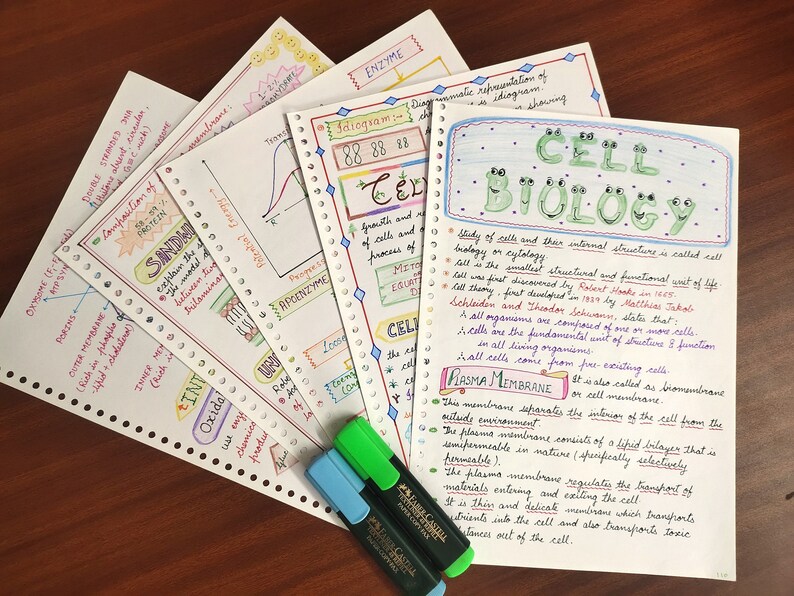 CELL
BIOLOGY
Study of cells and their internal structure is called cell
biology or cytology.
Cell is the smallest structural and functional unit of life.
Cell was first discovered by Robert Hooke in 1665.
Cell theory, first developed in 1839 by Matthias Jakob
Schleiden and Theodor Schwann, states that:
∴ all organisms are composed of one or more cells.
∴ cells are the fundamental unit of structure & function
in all living organisms.
∴ all cells come from pre-existing cells.
PLASMA MEMBRANE
It is also called as biomembrane
or cell membrane.
This membrane separates the interior of the cell from the
outside environment.
The plasma membrane consists of a lipid bilayer that is
semipermeable in nature (specifically selectively
permeable).
The plasma membrane regulates the transport of
materials entering and exiting the cell.
It is thin and delicate membrane which transports
nutrients into the cell and also transports toxic
out of the cell.
Diagrammatic representation of
is idiogram.
or showing
Idiogram:-
growth and
of cells and
process of
CELL
the
ENZYME
Potential Energy →
R
Progress
APOENZYME
Loose
membrane.
1-2%
Composition of
58-59%
PROTEIN
SANDW
explain the
The model
between
DOUBLE STRANDED DNA
(Histone absent, circular,
and G≡C rich)
OXYSOME
PORINS
OUTER MEMBRANE
(Rich in phospho
lipid + cholesterol)
INNER
(Rich
Oxida
use
chemical
produc
FABER-CASTELL
TEXTLINER
PAPER COPY FAX
FABER-CASTELL
TEXTLINER
PAPER COPY FAX